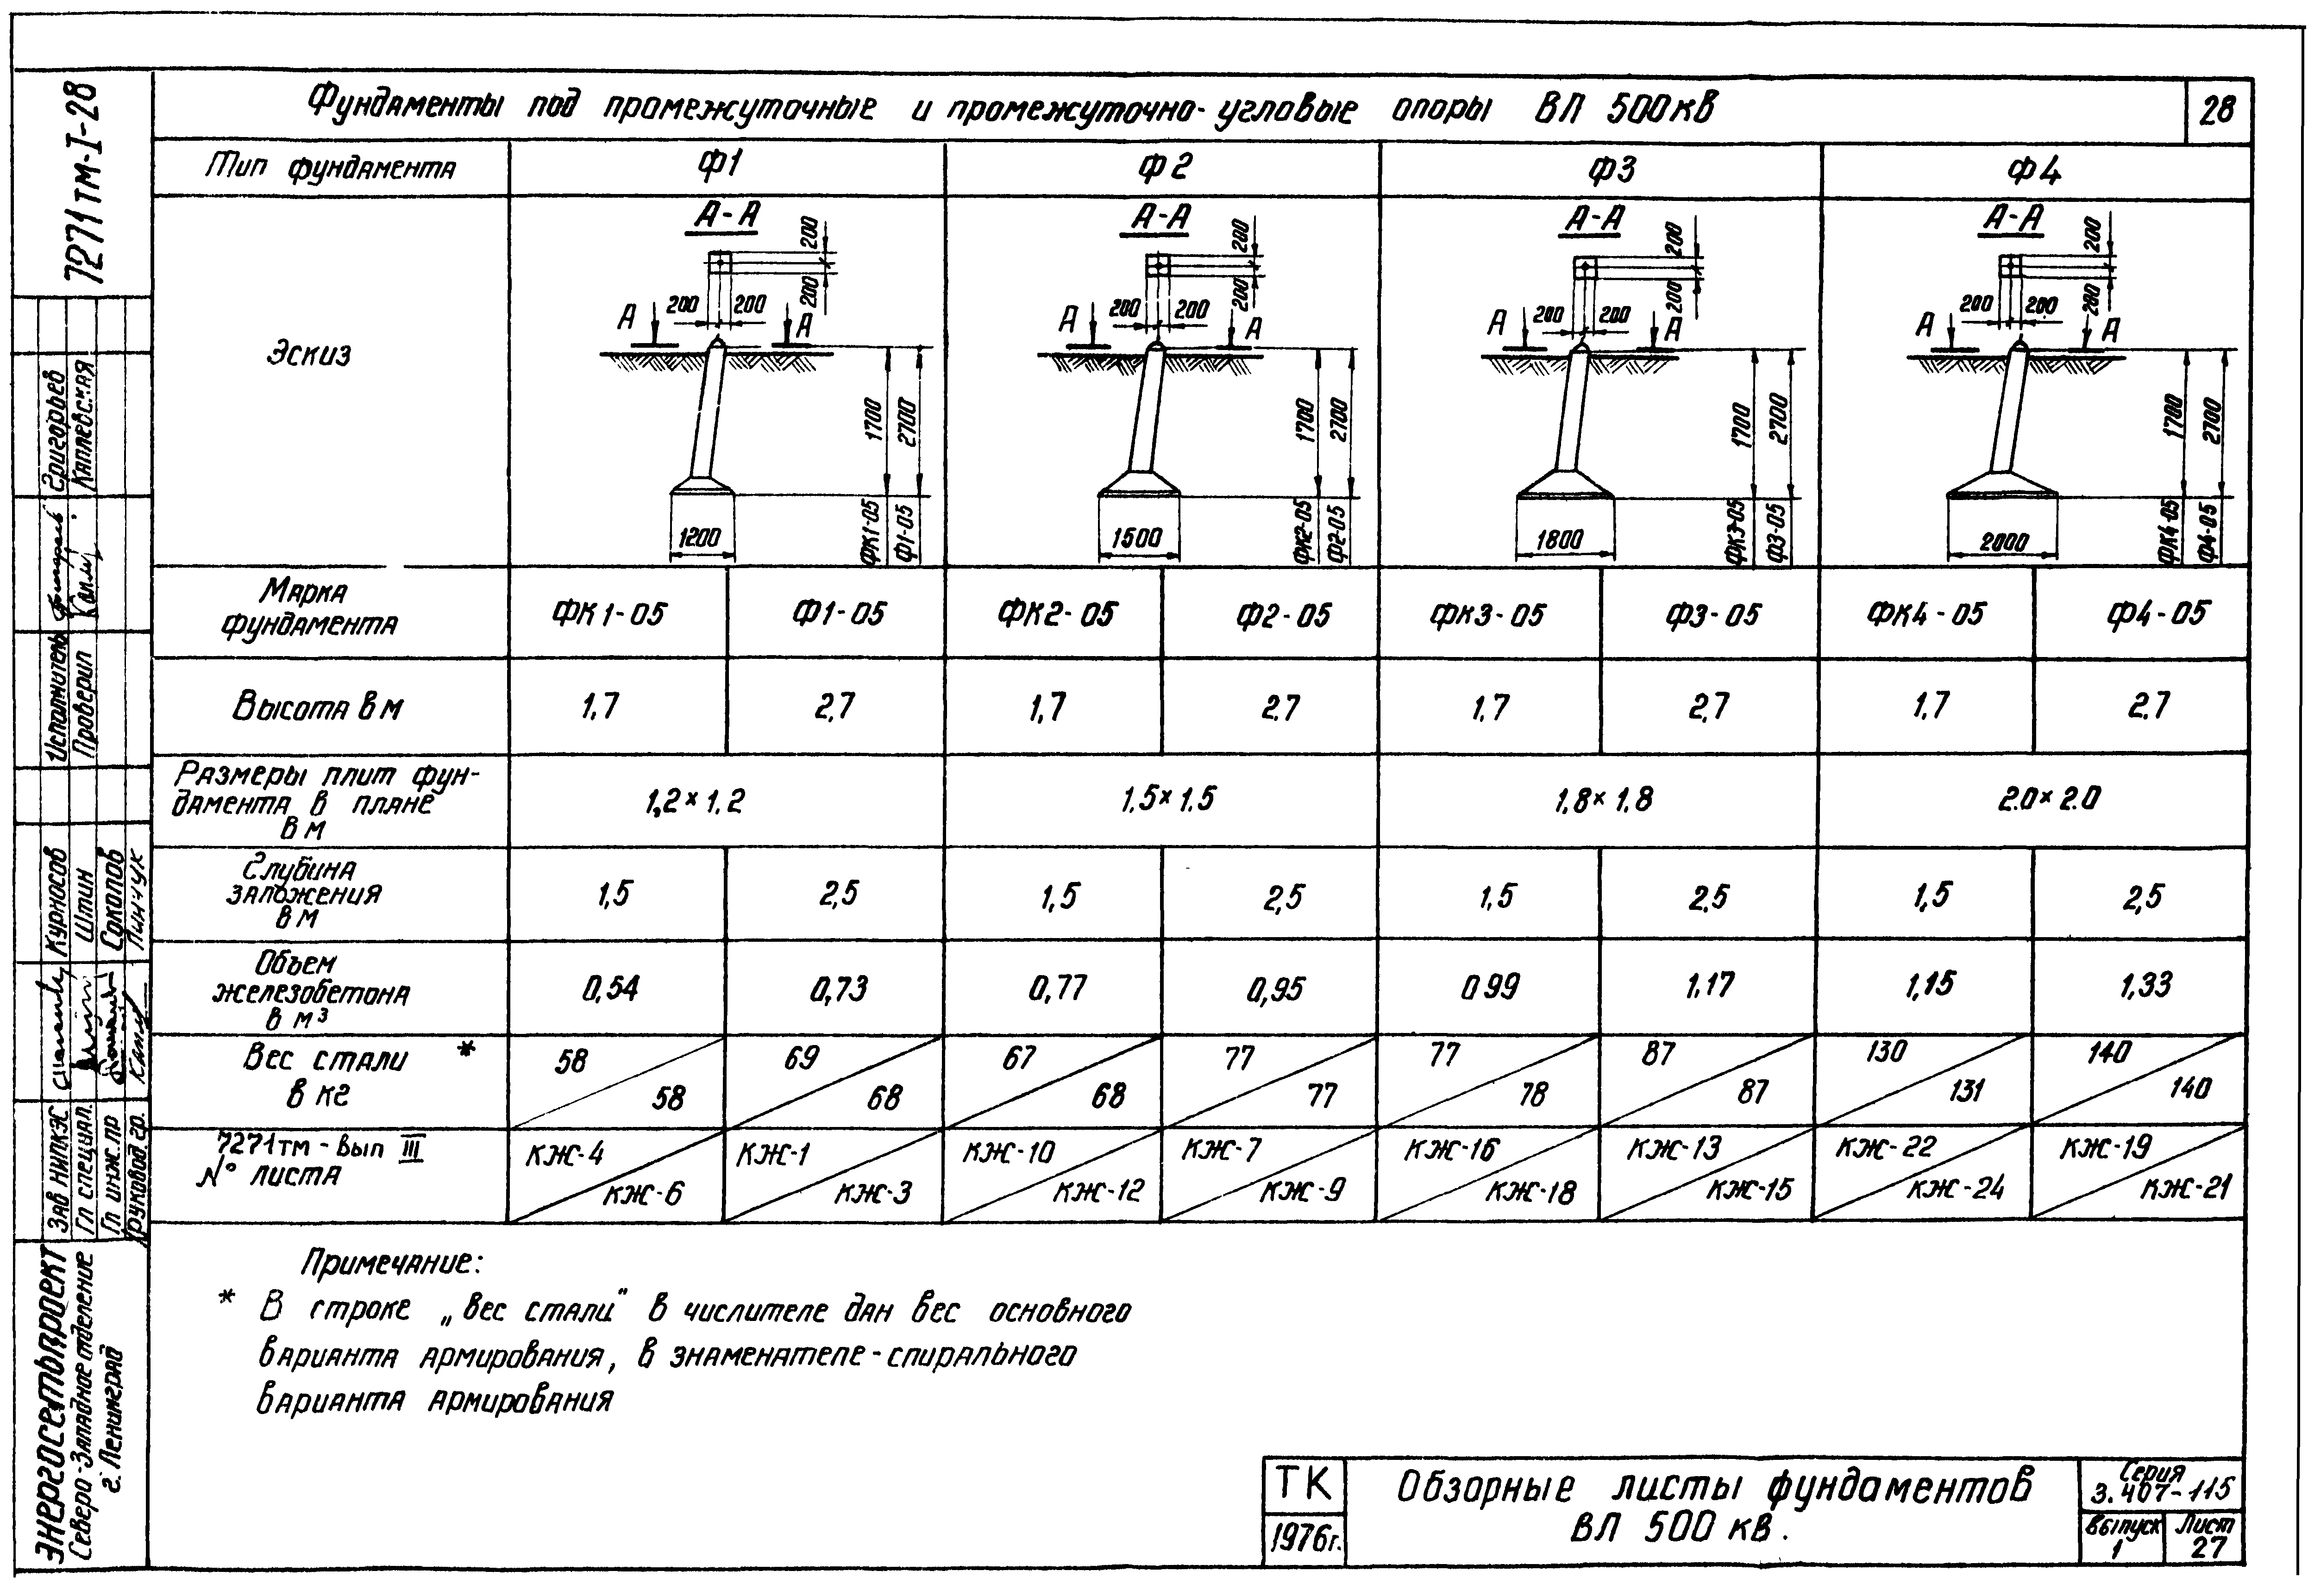 Фундаменты под промежуточные и промежуточно-угловые опоры ВЛ 500кв
28
Тип фундамента Ф1 Ф2 Ф3 Ф4
Эскиз
А-А А-А А-А А-А
200 200 200 200
200 200 200 200
200 200 200 200 200 200 200 200
А А А А А А А А
1700 2700 1700 2700 1700 2700 1700 2700
1200 1500 1800 2000
ФК1-05 Ф1-05 ФК2-05 Ф2-05 ФК3-05 Ф3-05 ФК4-05 Ф4-05
Марка
фундамента
ФК1-05 Ф1-05 ФК2-05 Ф2-05 ФК3-05 Ф3-05 ФК4-05 Ф4-05
Высота в м 1,7 2,7 1,7 2.7 1.7 2,7 1.7 2.7
Размеры плит фун-
дамента в плане
в м
1,2×1.2 1.5×1.5 1,8×1.8 2.0×2.0
Глубина
заложения
в м
1,5 2,5 1,5 2,5 1,5 2.5 1,5 2,5
Объем
железобетона
в м³
0,54 0,73 0,77 0,95 0 99 1.17 1,15 1,33
Вес стали *
в кг
58 69 67 77 77 87 130 140
58 68 68 77 78 87 131 140
7271тм-Вып III
№ листа
КЖ-4 КЖ-1 КЖ-10 КЖ-7 КЖ-16 КЖ-13 КЖ-22 КЖ-19
КЖ-6 КЖ-3 КЖ-12 КЖ-9 КЖ-18 КЖ-15 КЖ-24 КЖ-21
Примечание:
* В строке „Вес стали" в числителе дан вес основного
варианта армирования, в знаменателе-спирального
варианта армирования
ТК
1976г.
Обзорные листы фундаментов
ВЛ 500 кв.
Серия
3.407-115
Выпуск
1
Лист
27
7271тм-I-28
Григорьев
Каплевская
Исполнитель
Проверил
Курносов
Штин
Соколов
Пинчук
Зав НИЛКЭС
Гл специал.
Гл инж.пр
Руковод.гр.
Энергосетьпроект
Северо-Западное отделение
г. Ленинград